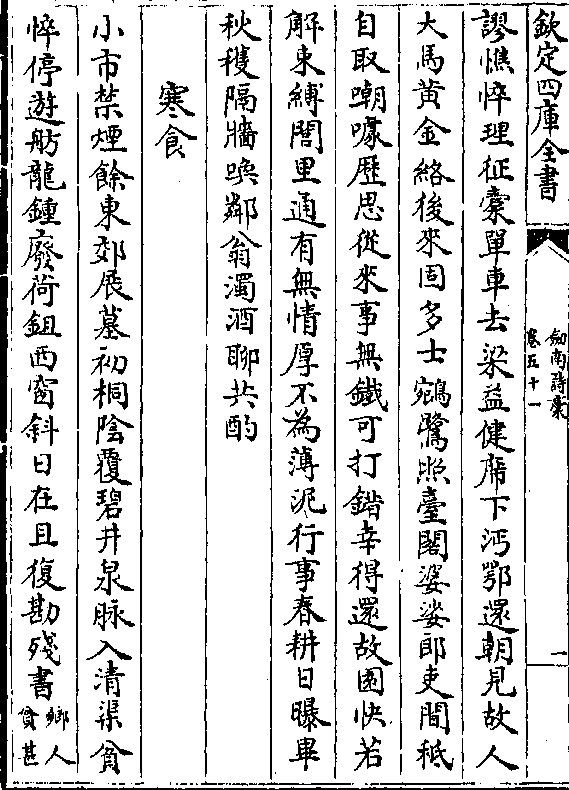 欽定四庫全書
劍南詩稾
卷五十一
一
謬憔悴理征橐單車去梁益健席下沔鄂還朝見故人
大馬黃金絡後來固多士鵷鷺照臺閣婆娑郎吏間秪
自取嘲噱歴思從來事無鐵可打錯幸得還故園快若
解束縛閭里通有無情厚不為薄泥行事春耕日曝畢
秋穫隔牆喚鄰翁濁酒聊共酌
寒食
小市禁煙餘東郊展墓初桐陰覆碧井泉脉入清渠貧
悴停遊舫龍鍾廢荷鉏西窗斜日在且復勘殘書鄉人貧甚